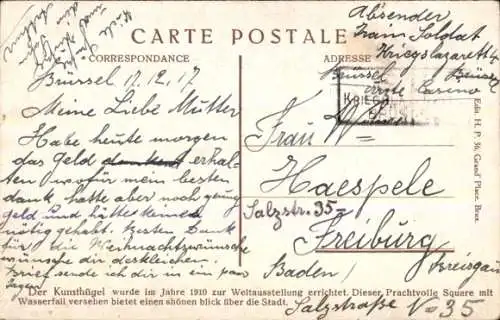 Absender
Train Soldat
Kriegslazarett 4
Brüssel
erste Casino
CARTE POSTALE
CORRESPONDANCE
ADRESSE
KRIEGS
Brüssel 17.12.17
Meine Liebe Mutter
Habe heute morgen
das Geld dankend erhal-
ten wofür mein besten
dank hatte aber noch genug
geld und hätte keines
nötig gehabt. Besten Dank
für die Weihnachtswünsche
wünsche dir desgleichen.
Brief sende ich dir in ein paar
Tagen
Frau
Haespele
Salzstr. 35
Freiburg
Baden Breisgau
Salzstraße No 35
Edit. H. P. 36, Grand' Place, Brux.
Der Kunsthügel wurde im Jahre 1910 zur Weltausstellung errichtet. Dieser Prachtvolle Square mit
Wasserfall versehen bietet einen shönen blick über die Stadt.